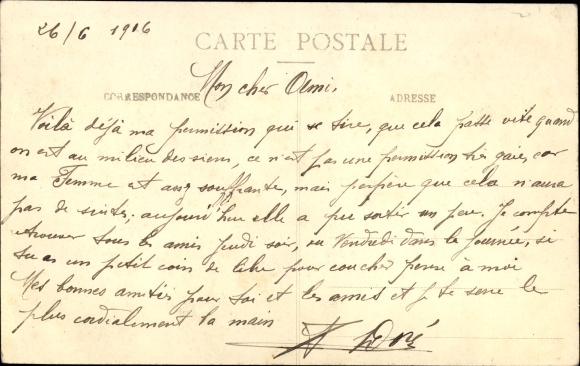 26/6 1916
CARTE POSTALE
Mon cher Ami.
CORRESPONDANCE
ADRESSE
Voilà déjà ma permission qui se tire, que cela passe vite quand
on est au milieu des siens, ce n'est pas une permission très gaie, car
ma Femme est assez souffrante, mais j'espère que cela n'aura
pas de suites; aujourd'hui elle a pu sortir un peu. Je compte
retrouver tous les amis jeudi soir, ou Vendredi dans la journée, si
tu as un petit coin de libre pour coucher pense à moi
Mes bonnes amitiés pour toi et les amis et je te serre le
plus cordialement la main